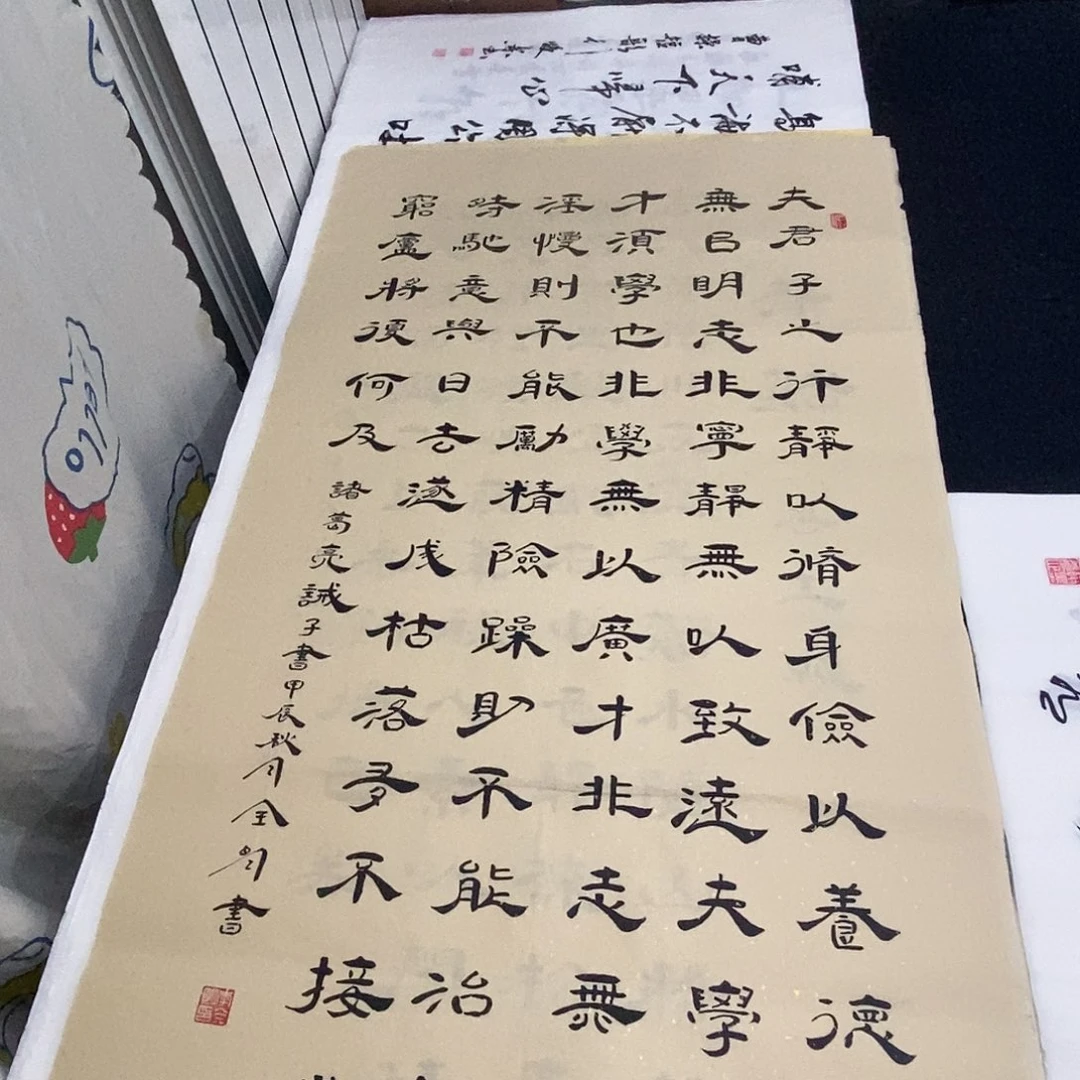 夫君子之行靜以脩身儉以養德
無㠯明志非寧靜無以致遠夫學
才須學也非學無以廣才非志無
淫慢則不能勵精險躁則不能治
時馳意與日去遂成枯落多不接
窮廬將復何及
諸葛亮誡子書甲辰秋月全書
海不厭深周公吐
哺天下歸心
曹操短歌行